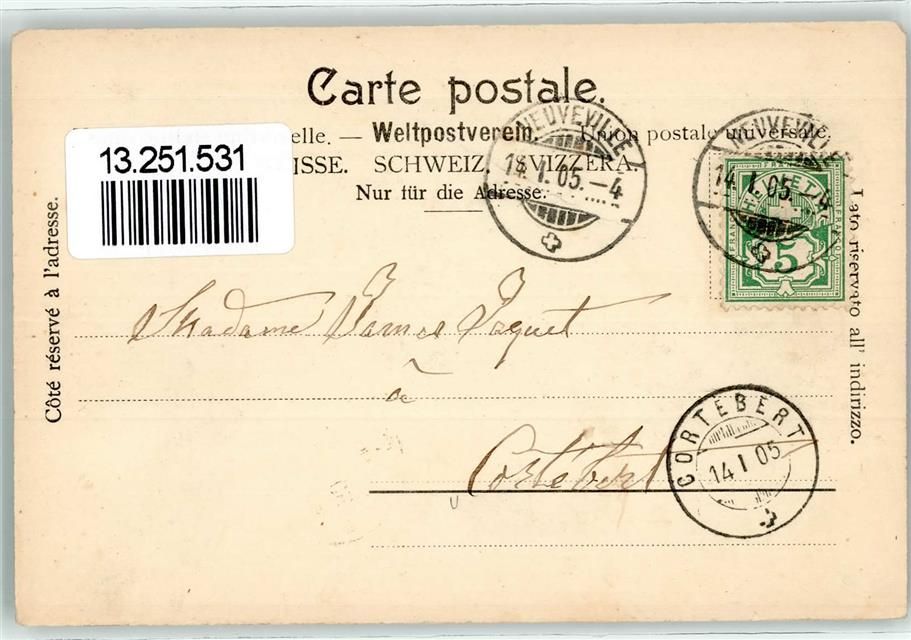 Carte postale.
elle. — Weltpostverein. — Union postale universale.
ISSE. SCHWEIZ. SVIZZERA.
Nur für die Adresse.
13.251.531
NEUVEVILLE
14.I.05.–4
NEUVEVILLE
14.I.05.–4
HELVETIA
FRANCO
FRANCO
5
Côté réservé à l'adresse.
Lato riservato all' indirizzo.
Madame James Jaquet
à
Cortébert
CORTEBERT
14 I 05